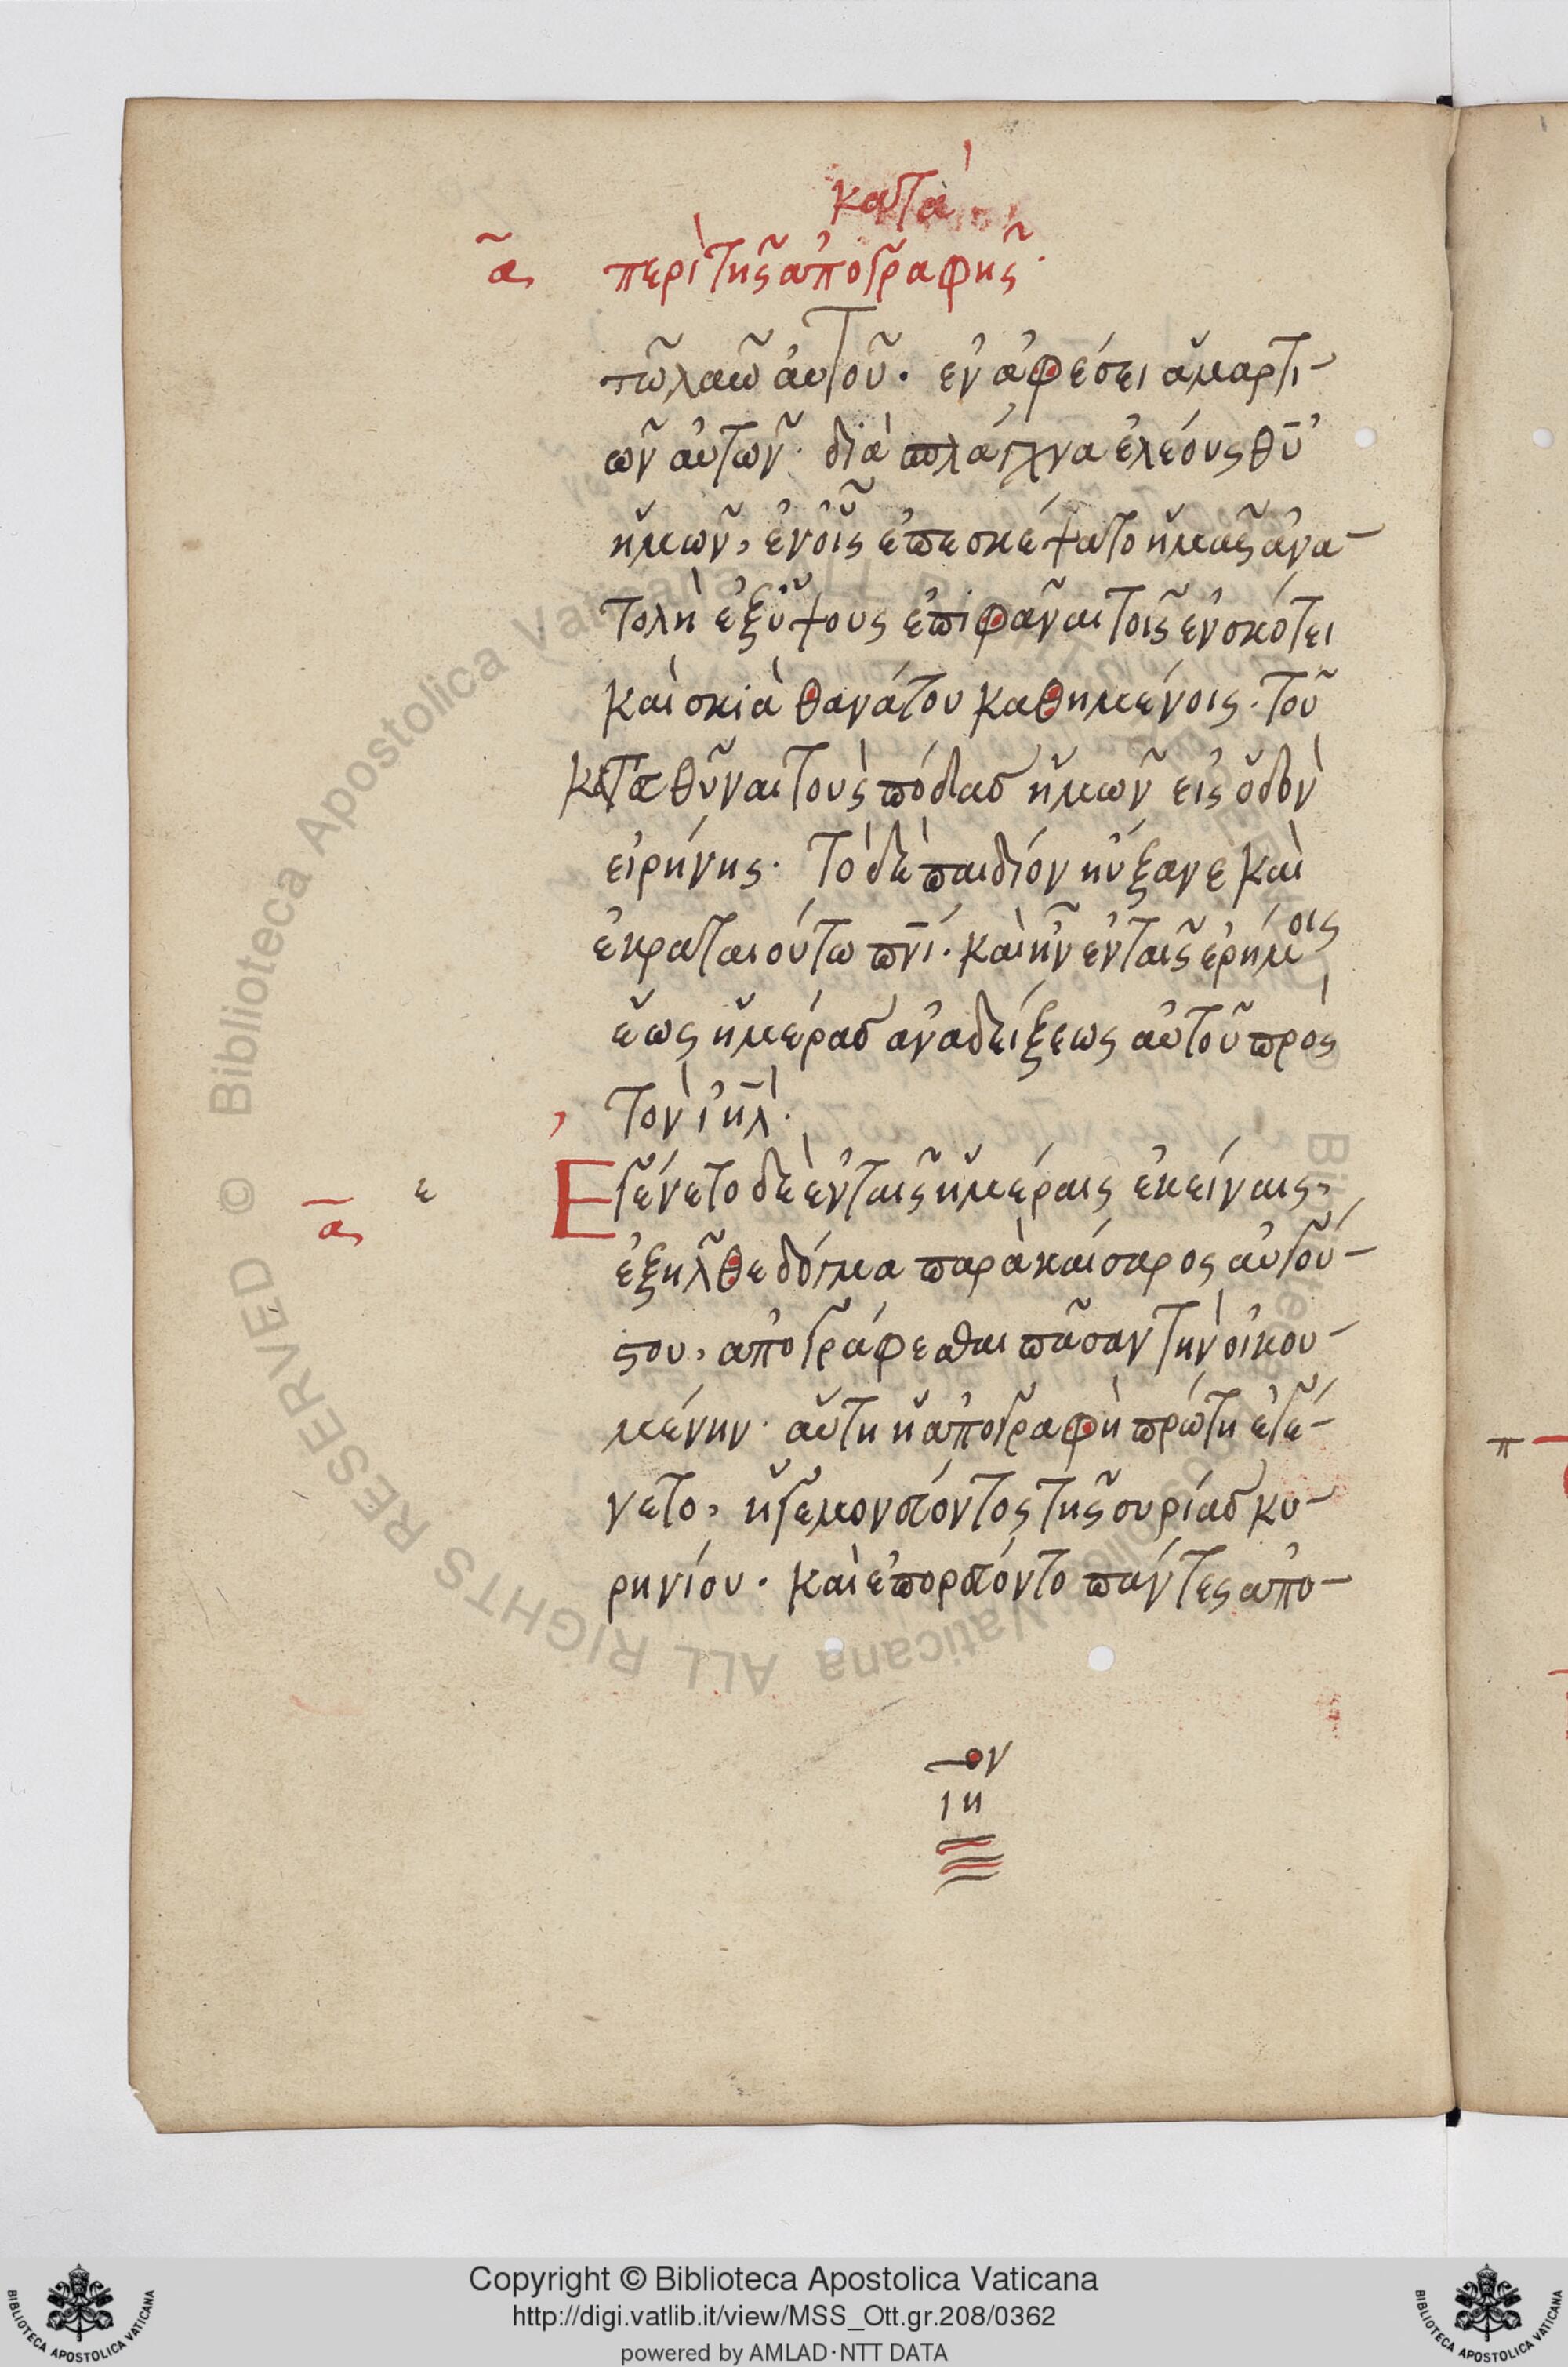 κατὰ
α̃ περὶ τῆς ἀπογραφῆς·
τῶ λαῶ ἀυτοῦ· ἐν ἀφέσει ἁμαρτι-
ῶν ἀυτῶν· διὰ σπλάγχνα ἐλέους θ̅υ̅
ἡμῶν, ἐν οἷς ἐπεσκέψατο ἡμᾶς ἀνα-
τολὴ ἐξ ὕψους ἐπιφᾶναι τοῖς ἐν σκότει
καὶ σκιὰ θανάτου καθημένοις· τοῦ
κατευθῦναι τοὺς πόδας ἡμῶν εἰς ὁδὸν
εἰρήνης· Τὸ δὲ παιδίον ηὔξανε καὶ
ἐκραταιοῦτω π̅ν̅ι̅· καὶ ἦν ἐν ταῖς ἐρήμοις
ἕως ἡμέρας ἀναδείξεως ἀυτοῦ πρὸς
τὸν ἰ̅η̅λ̅·
α̅ ε Ἐγένετο δὲ ἐν ταῖς ἡμέραις ἐκείναις,
ἐξῆλθε δόγμα παρὰ καίσαρος ἀυγού-
στου, ἀπογράφεσθαι πᾶσαν τὴν οἰκου-
μένην· αὕτη ἡ ἀπογραφὴ πρώτη ἐγέ-
νετο, ἡγεμονεύοντος τῆς συρίας κυ-
ρηνίου· καὶ ἐπορεύοντο πάντες ἀπο-
ον
ιη
© Biblioteca Apostolica Vaticana ALL RIGHTS RESERVED
Copyright © Biblioteca Apostolica Vaticana
http://digi.vatlib.it/view/MSS_Ott.gr.208/0362
powered by AMLAD·NTT DATA
BIBLIOTECA APOSTOLICA VATICANA
BIBLIOTECA APOSTOLICA VATICANA